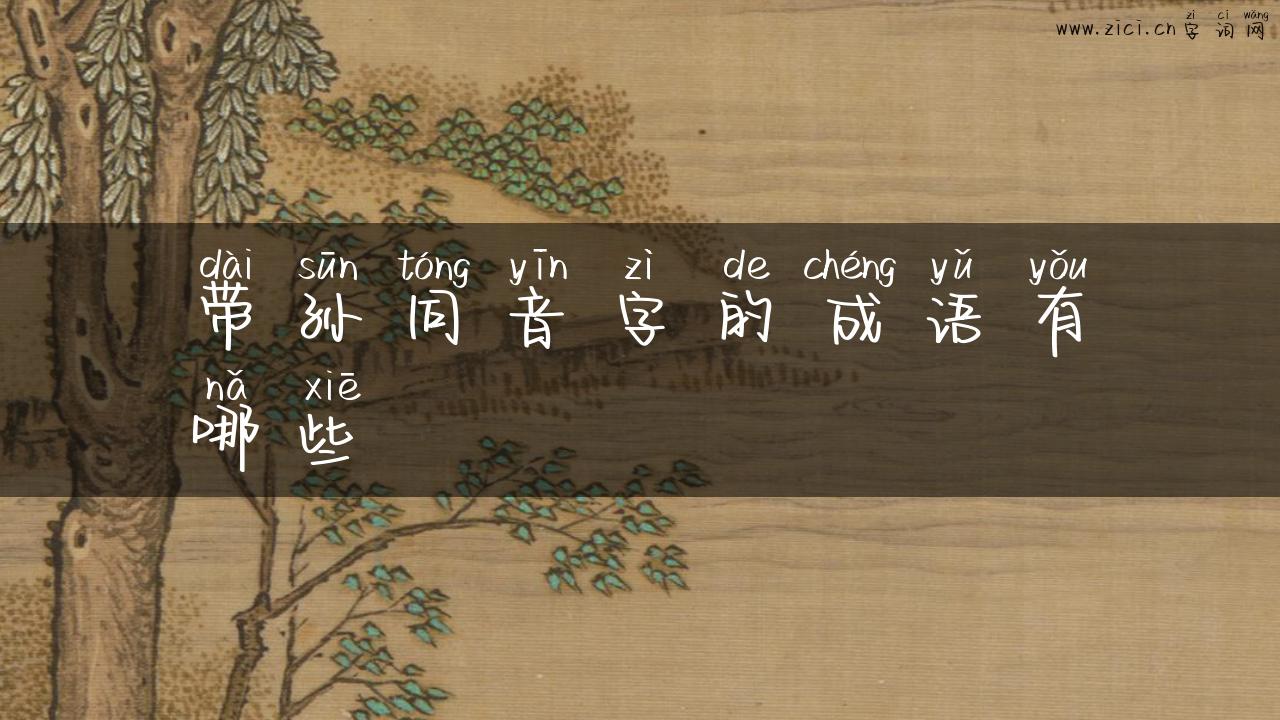 zì cí wǎng
www.zici.cn 字词网
dài sūn tóng yīn zì de chéng yǔ yǒu
带孙同音字的成语有
nǎ xiē
哪些